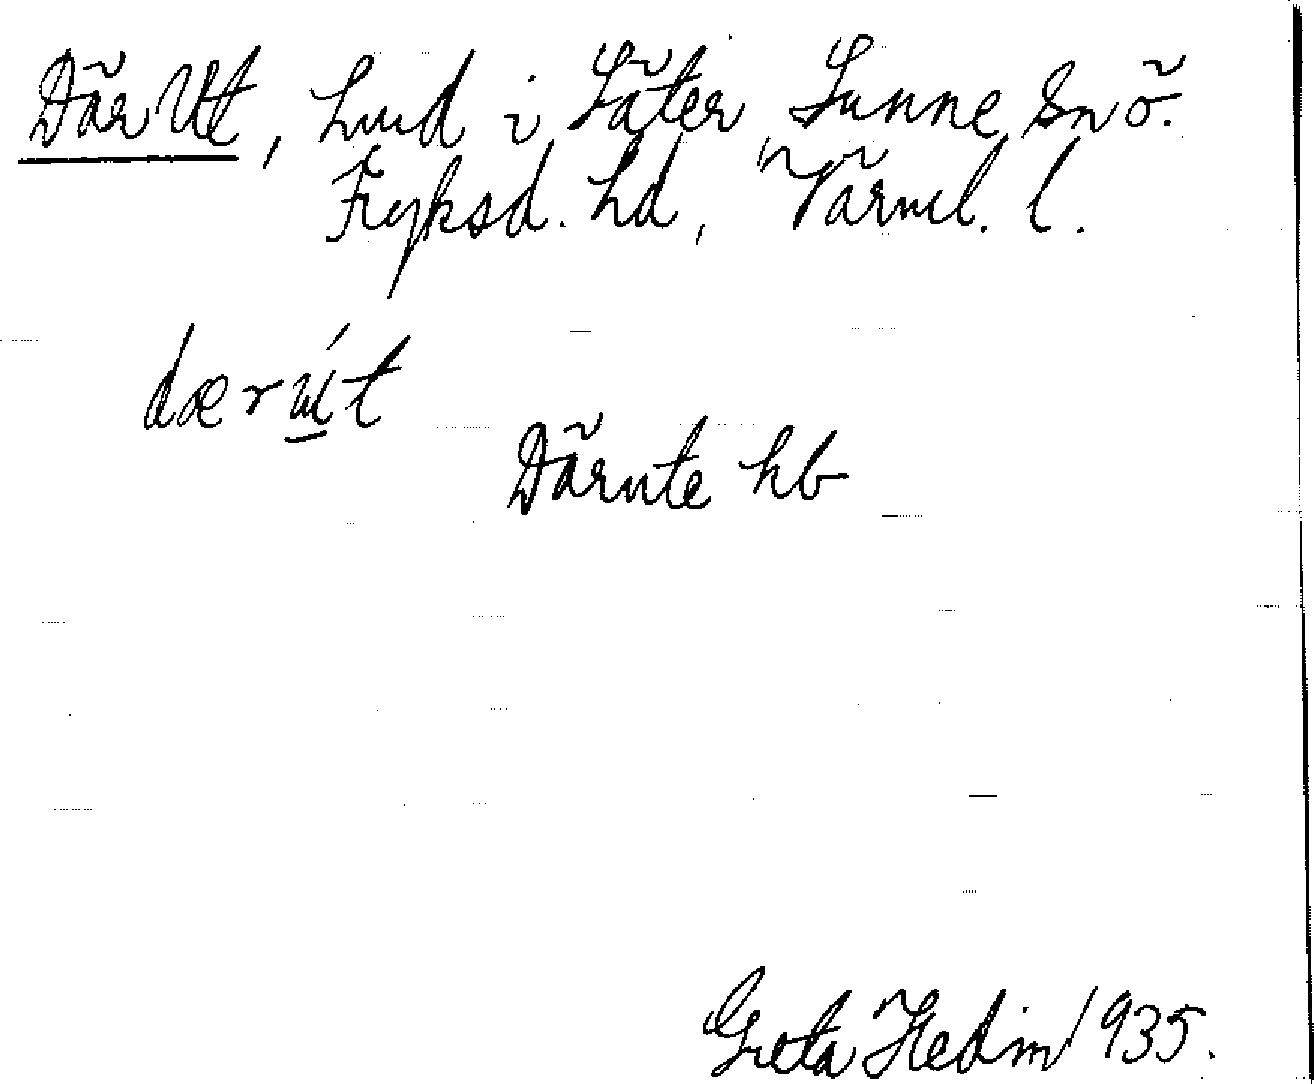 Där Ut, hmd i Säter, Sunne sn ö.
Fryksd. hd, Värml. l.
dærút
Därute hb
Greta Hedin 1935.